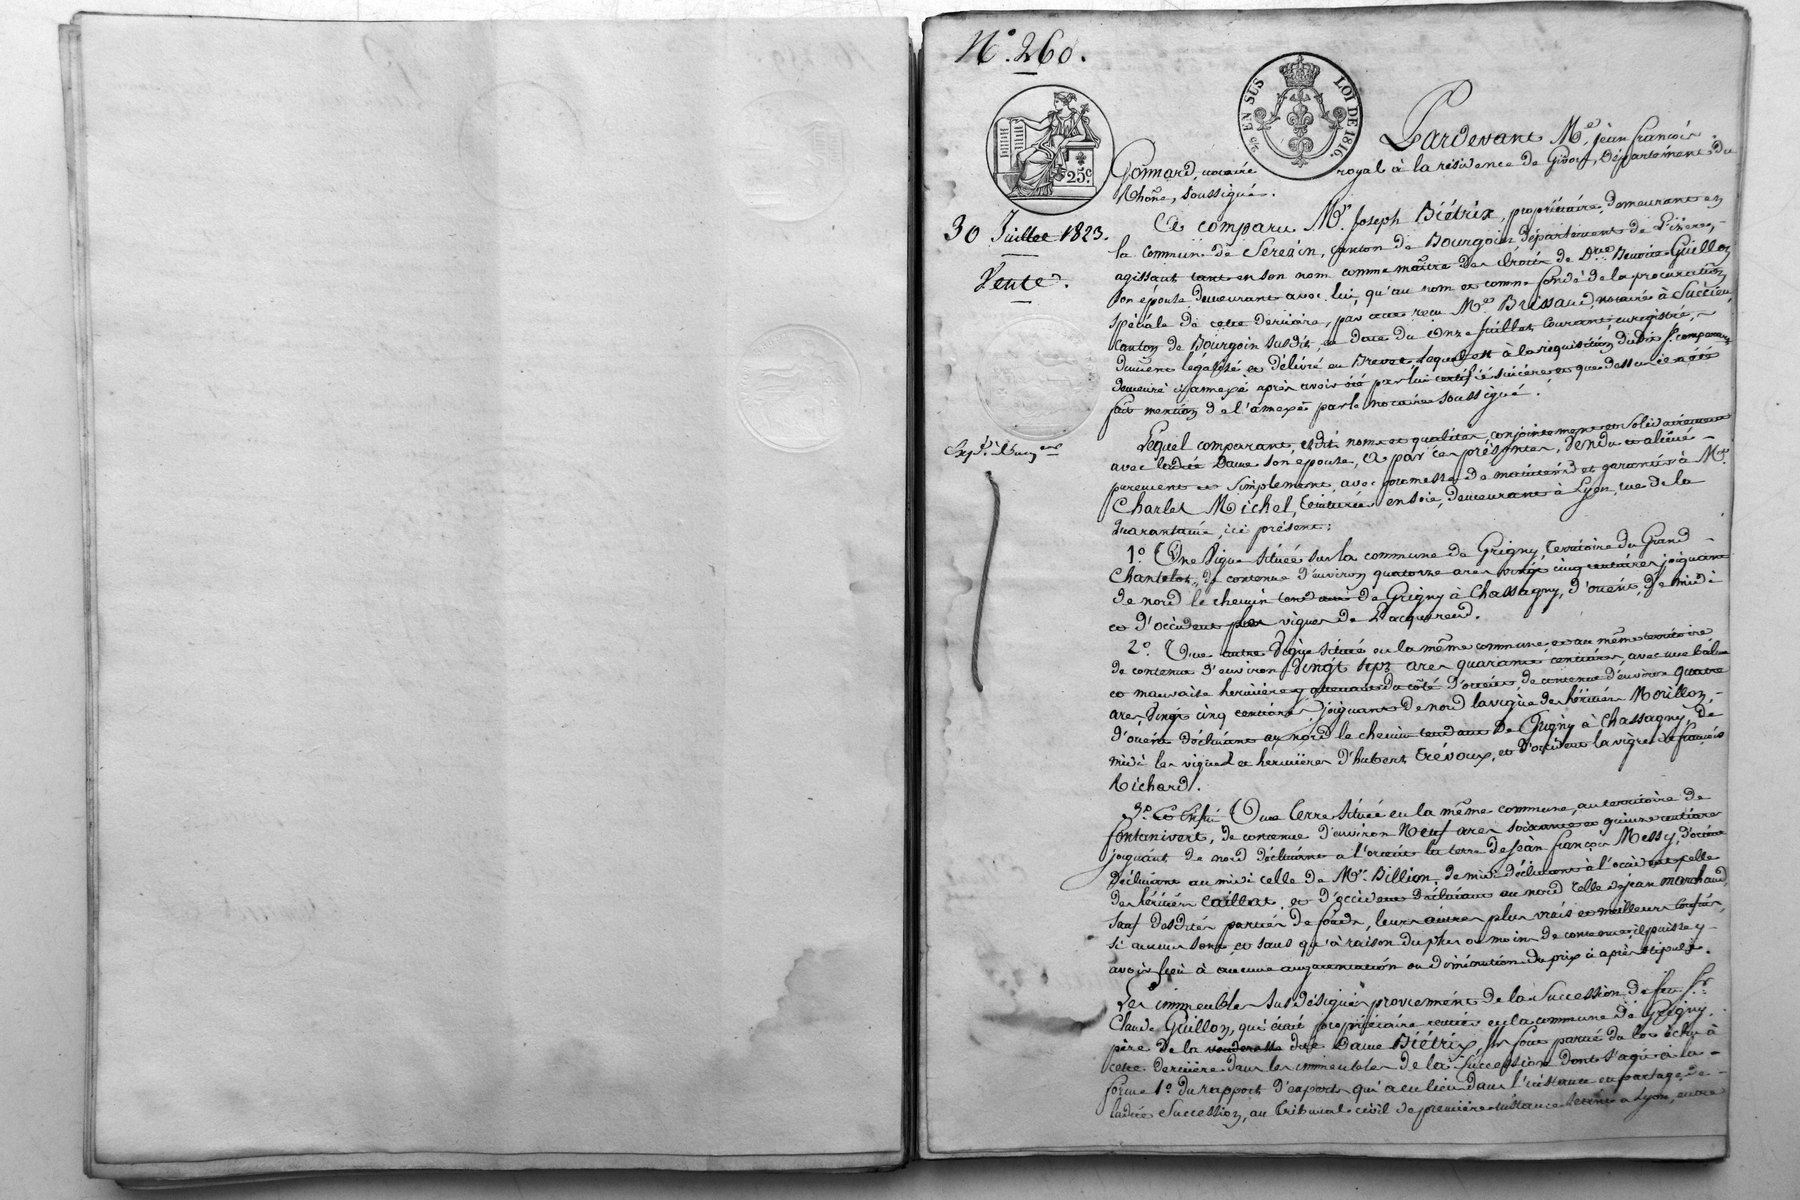 N.° 260.
EN SUS LOI DE 1816
25.c
Pardevant M.e jean françois
Gonnard, notaire royal à la résidence de Givors, Département du
Rhône, soussigné.
30 Juillet 1823.
Vente.
A comparu M.r Joseph Biétrix, propriétaire, demeurant en
la commune de Serezin, canton de Bourgoin, département de l'isère,
agissant tant en son nom comme maître des droits de D.me Guillon
son épouse demeurant avec lui, qu'au nom et comme fondé de la procuration
spéciale de cette dernière, par acte reçu M.e Brissaud, notaire à Succieu,
canton de Bourgoin susdit, en date du onze juillet courant, enregistré,
dument légalisé et délivré en Brevet, lequel est à la réquisition dudit S.r comparant
demeuré cy annexé après avoir été par lui certifié sincère et que dessus ce a été
fait mention de l'annexe par le notaire soussigné.
Lequel comparant, esdits noms et qualités, conjointement et solidairement
avec ladite Dame son épouse, A par ces présentes, Vendu et aliéné
purement et simplement, avec promesse de maintenir et garantir à M.r
Charles Michel, teinturier en soie, demeurant à Lyon, rue de la
quarantaine, ici présent;
1.° Une Vigne située sur la commune de Grigny, territoire du Grand
Chantelot, de contenue d'environ quatorze ares vingt cinq centiares joignant
de nord le chemin tendant de Grigny à Chassagny, d'orient, de midi
et d'occident les vignes de l'acquéreur.
2.° Une autre Vigne située en la même commune, et au même territoire
de contenue d'environ Vingt sept ares quarante centiares, avec une balme
et mauvaise hermière y attenant du côté d'orient, de contenue d'environ quatre
ares Vingt cinq centiares, joignant de nord la vigne des héritiers Morillon,
d'orient déclinant au nord le chemin tendant de Grigny à Chassagny, de
midi les vignes et hermières d'hubert Trévoux, et d'occident la vigne de françois
Richard.
3.° Et Enfin Une terre située en la même commune, au territoire de
fontanivert, de contenue d'environ Neuf ares soixante et quinze centiares
joignant de nord déclinant à l'orient la terre de Jean François Messy, d'orient
déclinant au midi celle de M.r Billion, de midi déclinant à l'occident celle
des héritiers Caillat, et d'occident déclinant au nord celle de jean marchand,
sauf desdites parties de fonds, leurs autres plus vrais et meilleurs confins,
si aucuns sont, et sans qu'à raison du plus ou moins de contenue, il puisse y
avoir lieu à aucune augmentation ou diminution du prix ci après stipulé.
Les immeubles susdésignés proviennent de la succession de feu S.r
Claude Guillon, qui était propriétaire rentier en la commune de Grigny,
père de la venderesse dite Dame Biétrix, et font partie du lot échu à
cette dernière dans les immeubles de la succession dont s'agit à la
forme 1.° du rapport d'experts qui a eu lieu dans l'instance en partage de
ladite Succession, au tribunal civil de première instance séant à Lyon, entre